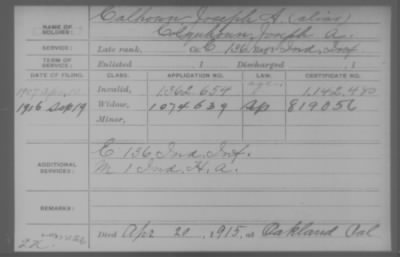 NAME OF SOLDIER: Calhoun, Joseph A. (alias)
Colquhoun, Joseph A.
SERVICE: Late rank, Co. E, 136 Reg't Ind. Inf.
TERM OF SERVICE: Enlisted , 1 Discharged , 1
DATE OF FILING. CLASS. APPLICATION NO. LAW. CERTIFICATE NO.
1907 Invalid, 1362.654 1.142.480
1916 Sep 19 Widow, 1074639 Ap 819056
Minor,
ADDITIONAL SERVICES: E 136 Ind. Inf.
M 1 Ind. H. A.
REMARKS:
Died Apr 20, 1915, at Oakland Cal